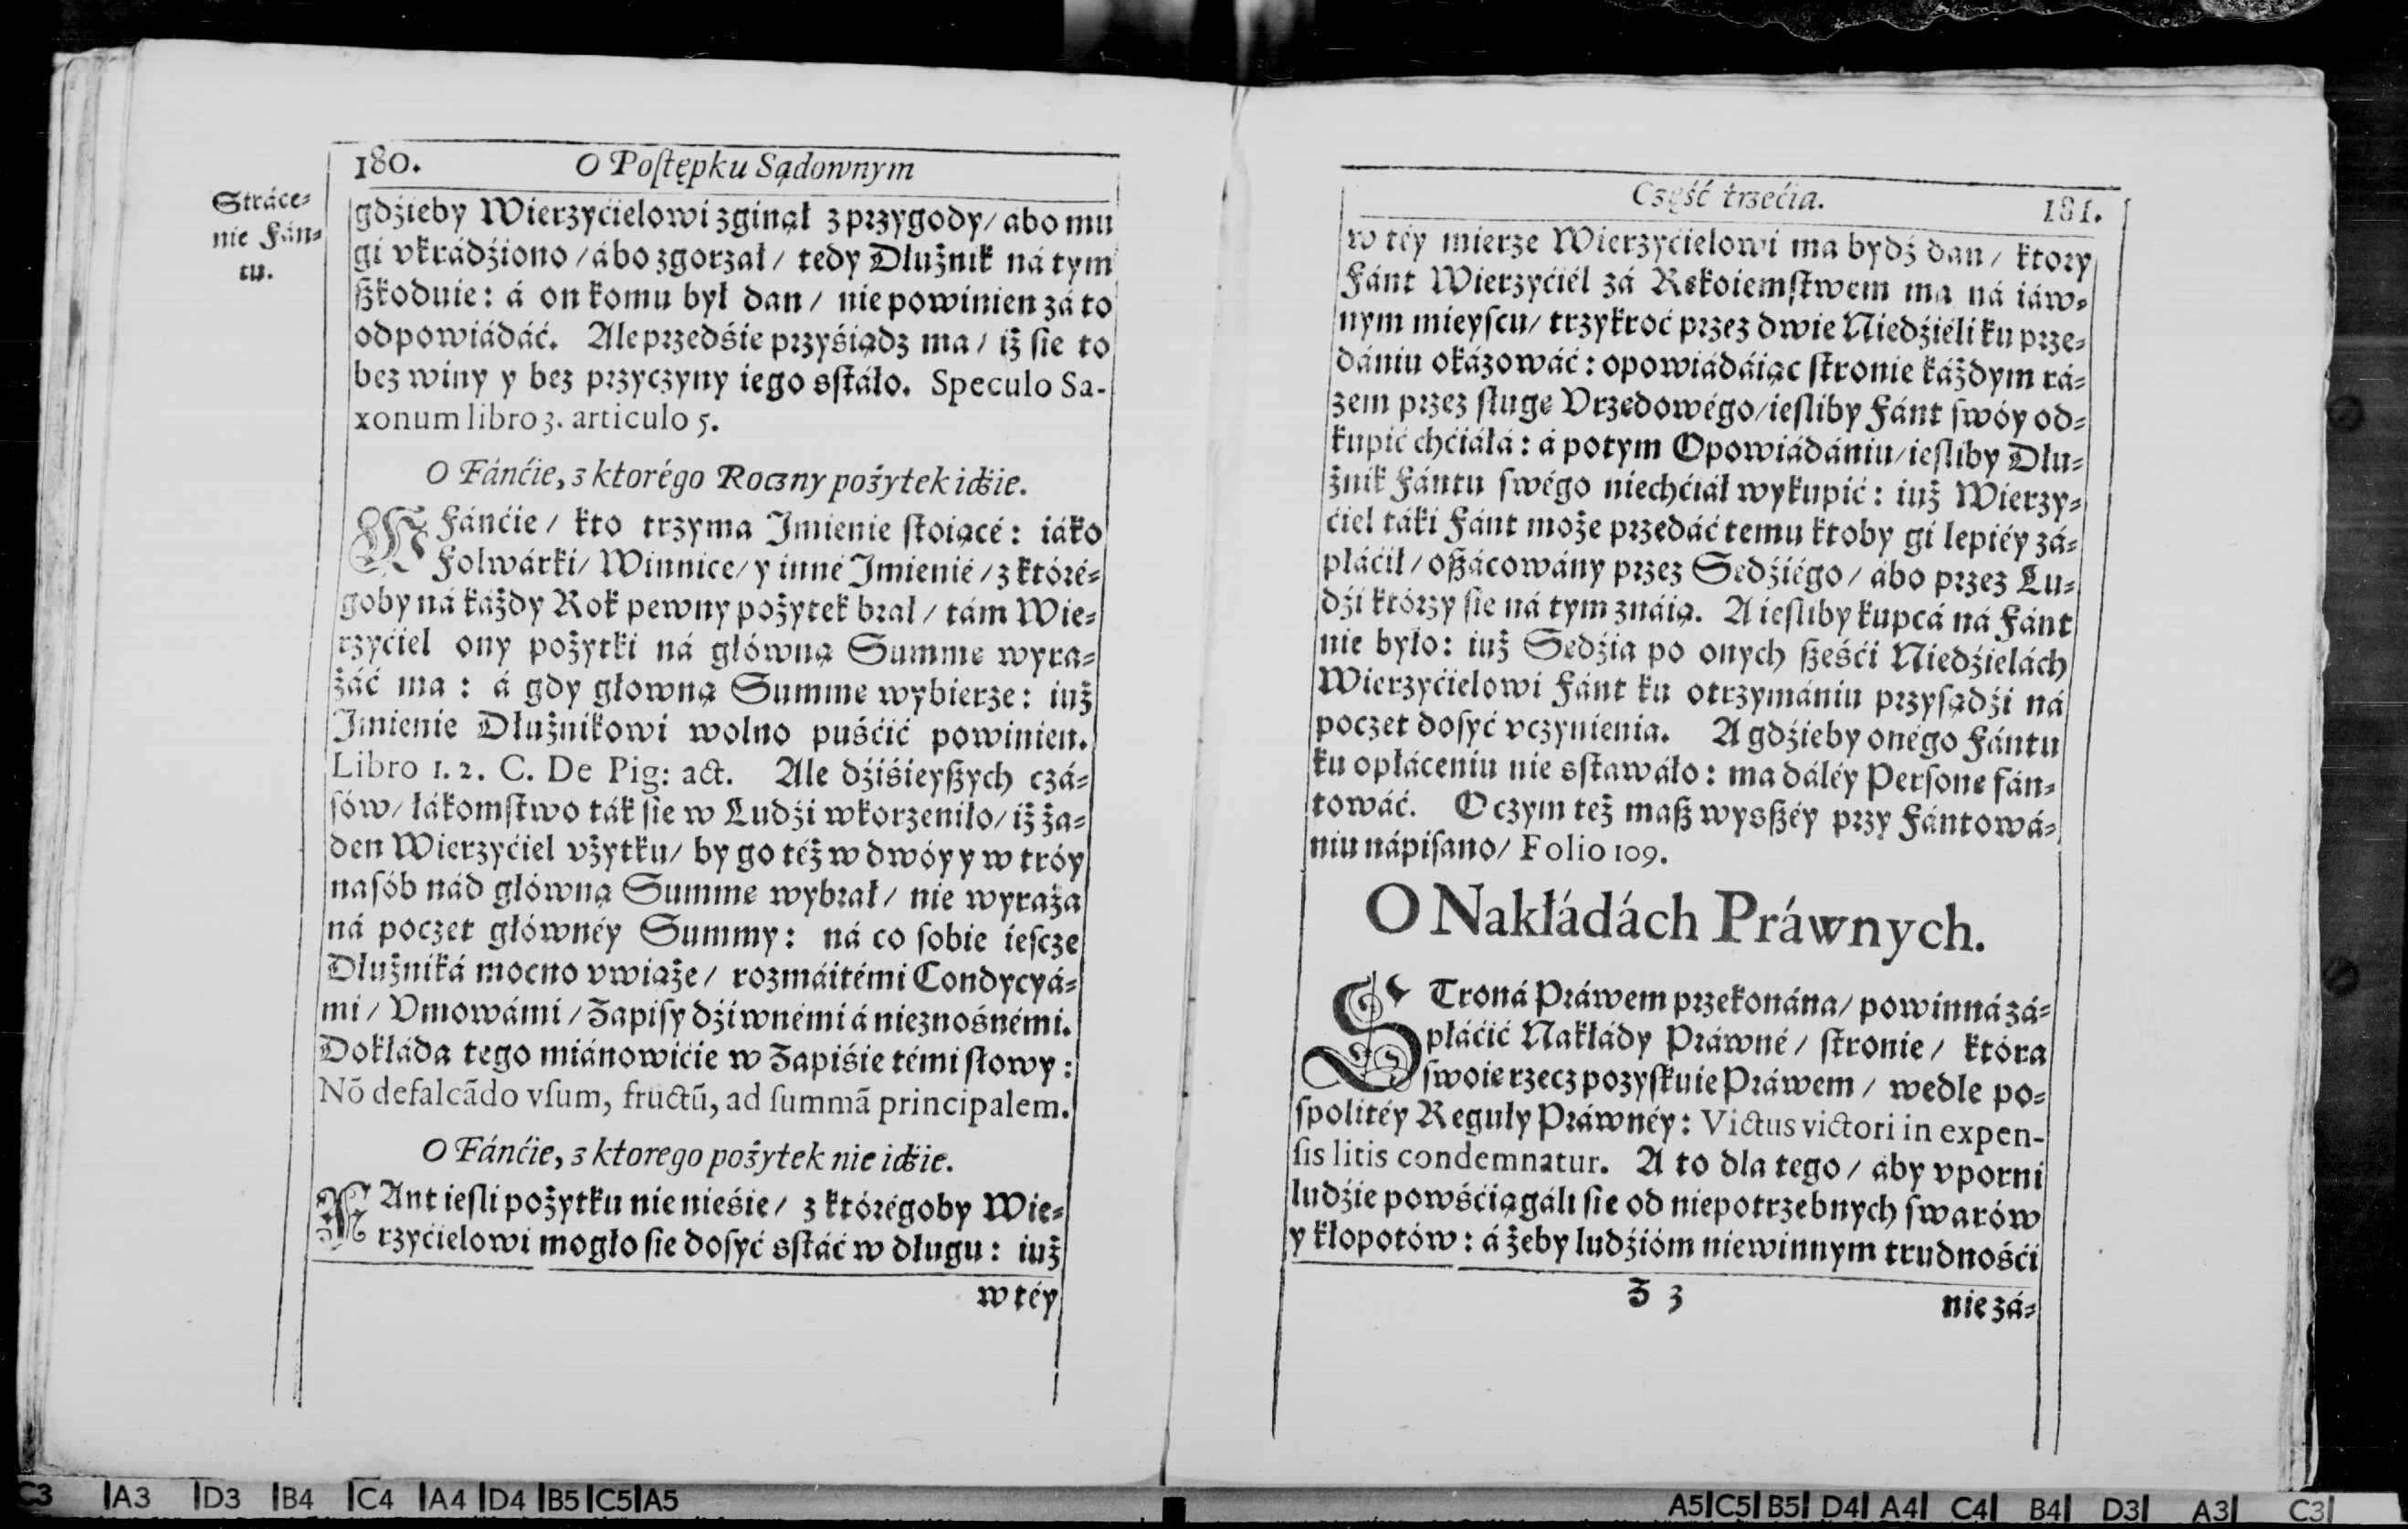 180. O Poſtępku Sądownym
Stráce-
nie Fán-
tu.
gdźieby Wierzyćielowi zginął z przygody/ abo mu
gi vkrádźiono/ ábo zgorzał/ tedy Dłużnik ná tym
ßkoduie: á on komu był dan/ nie powinien zá to
odpowiádáć. Ale przedśie przyśiądz ma/ iż ſie to
bez winy y bez przyczyny iego sſtáło. Speculo Sa-
xonum libro 3. articulo 5.
O Fánćie, z ktorégo Roczny pożytek idźie.
W Fánćie/ kto trzyma Jmienie ſtoiącé: iáko
Folwárki/ Winnice/ y inné Jmienié/ z któré-
goby ná káżdy Rok pewny pożytek brał/ tám Wie-
rzyćiel ony pożytki ná główną Summe wyra-
żáć ma: á gdy głowną Summe wybierze: iuż
Jmienie Dłużnikowi wolno puśćić powinien.
Libro 1. 2. C. De Pig: act. Ale dźiśieyßych czá-
ſów/ łákomſtwo ták ſie w Ludźi wkorzeniło/ iż ża-
den Wierzyćiel vżytku/ by go téż w dwóy y w tróy
naſób nád główną Summe wybrał/ nie wyraża
ná poczet głównéy Summy: ná co ſobie ieſcze
Dłużniká mocno vwiąże/ rozmáitémi Condycyá-
mi/ Vmowámi/ Zapiſy dźiwnémi á nieznośnémi.
Dokłáda tego miánowićie w Zapiśie témi ſłowy:
Nō defalcādo vſum, fructū, ad ſummā principalem.
O Fánćie, z ktorego pożytek nie idźie.
FAnt ieſli pożytku nie nieśie/ z którégoby Wie-
rzyćielowi mogło ſie doſyć sſtáć w długu: iuż
w téy
Część trzećia. 181.
w téy mierze Wierzyćielowi ma bydź dan/ ktory
Fánt Wierzyćiél zá Rękoiemſtwem ma ná iáw-
nym mieyſcu/ trzykroć przez dwie Niedźiéli ku prze-
dániu okázowáć: opowiádáiąc ſtronie káżdym rá-
zem przez ſługe Vrzędowégo/ ieſliby Fánt ſwóy od-
kupić chćiáłá: á po tym Opowiádániu/ ieſliby Dłu-
żnik Fántu ſwégo niechćiáł wykupić: iuż Wierzy-
ćiel táki Fánt może przedáć temu ktoby gi lepiéy zá-
płáćił/ oßácowány przez Sędźiégo/ ábo przez Lu-
dźi którzy ſie ná tym znáią. A ieſliby kupcá ná Fánt
nie było: iuż Sędźia po onych ßeśći Niedźielách
Wierzyćielowi Fánt ku otrzymániu przyſądźi ná
poczet doſyć vczynienia. A gdźieby onégo Fántu
ku opłáceniu nie sſtawáło: ma dáléy Perſonę fán-
towáć. O czym też maß wysßéy przy Fántowá-
niu nápiſano/ Folio 109.
O Nakłádách Práwnych.
STroná Práwem przekonána/ powinná zá-
płáćić Nakłády Práwné/ ſtronie/ która
ſwoie rzecz pozyſkuie Práwem/ wedle po-
ſpolitéy Reguły Práwnéy: Victus victori in expen-
ſis litis condemnatur. A to dla tego/ áby vporni
ludźie powśćiągáli ſie od niepotrzebnych ſwarów
y kłopotów: á żeby ludźióm niewinnym trudnośći
Z 3 nie zá-
C3 A3 D3 B4 C4 A4 D4 B5 C5 A5
A5 C5 B5 D4 A4 C4 B4 D3 A3 C3